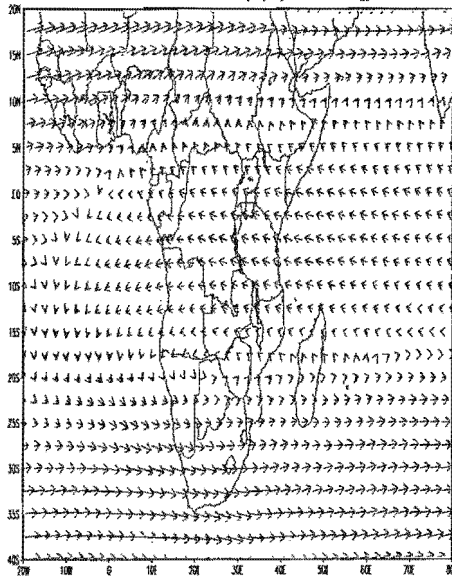 20N
15N
10N
5N
EQ
5S
10S
15S
20S
25S
30S
35S
40S
20W 10W 0 10E 20E 30E 40E 50E 60E 70E 80